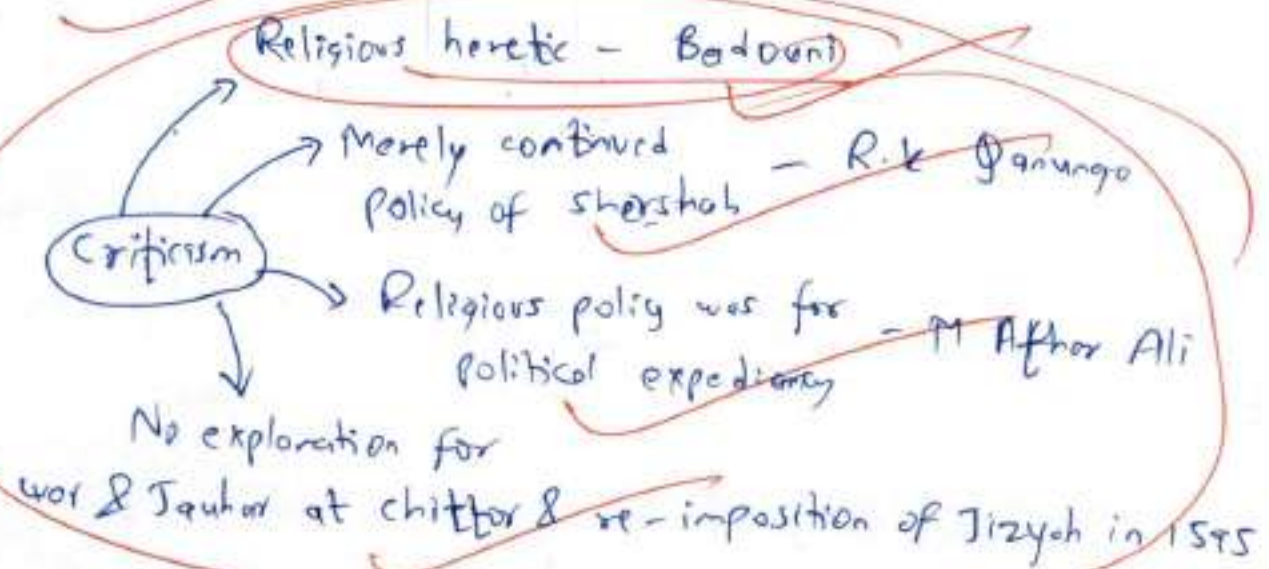 Religious heretic - Badouni
Merely continued
policy of shershah - R.K Qanungo
Criticism
Religious policy was for
political expediency - M Athar Ali
No exploration for
war & Jauhar at chittor & re-imposition of Jizyah in 1595